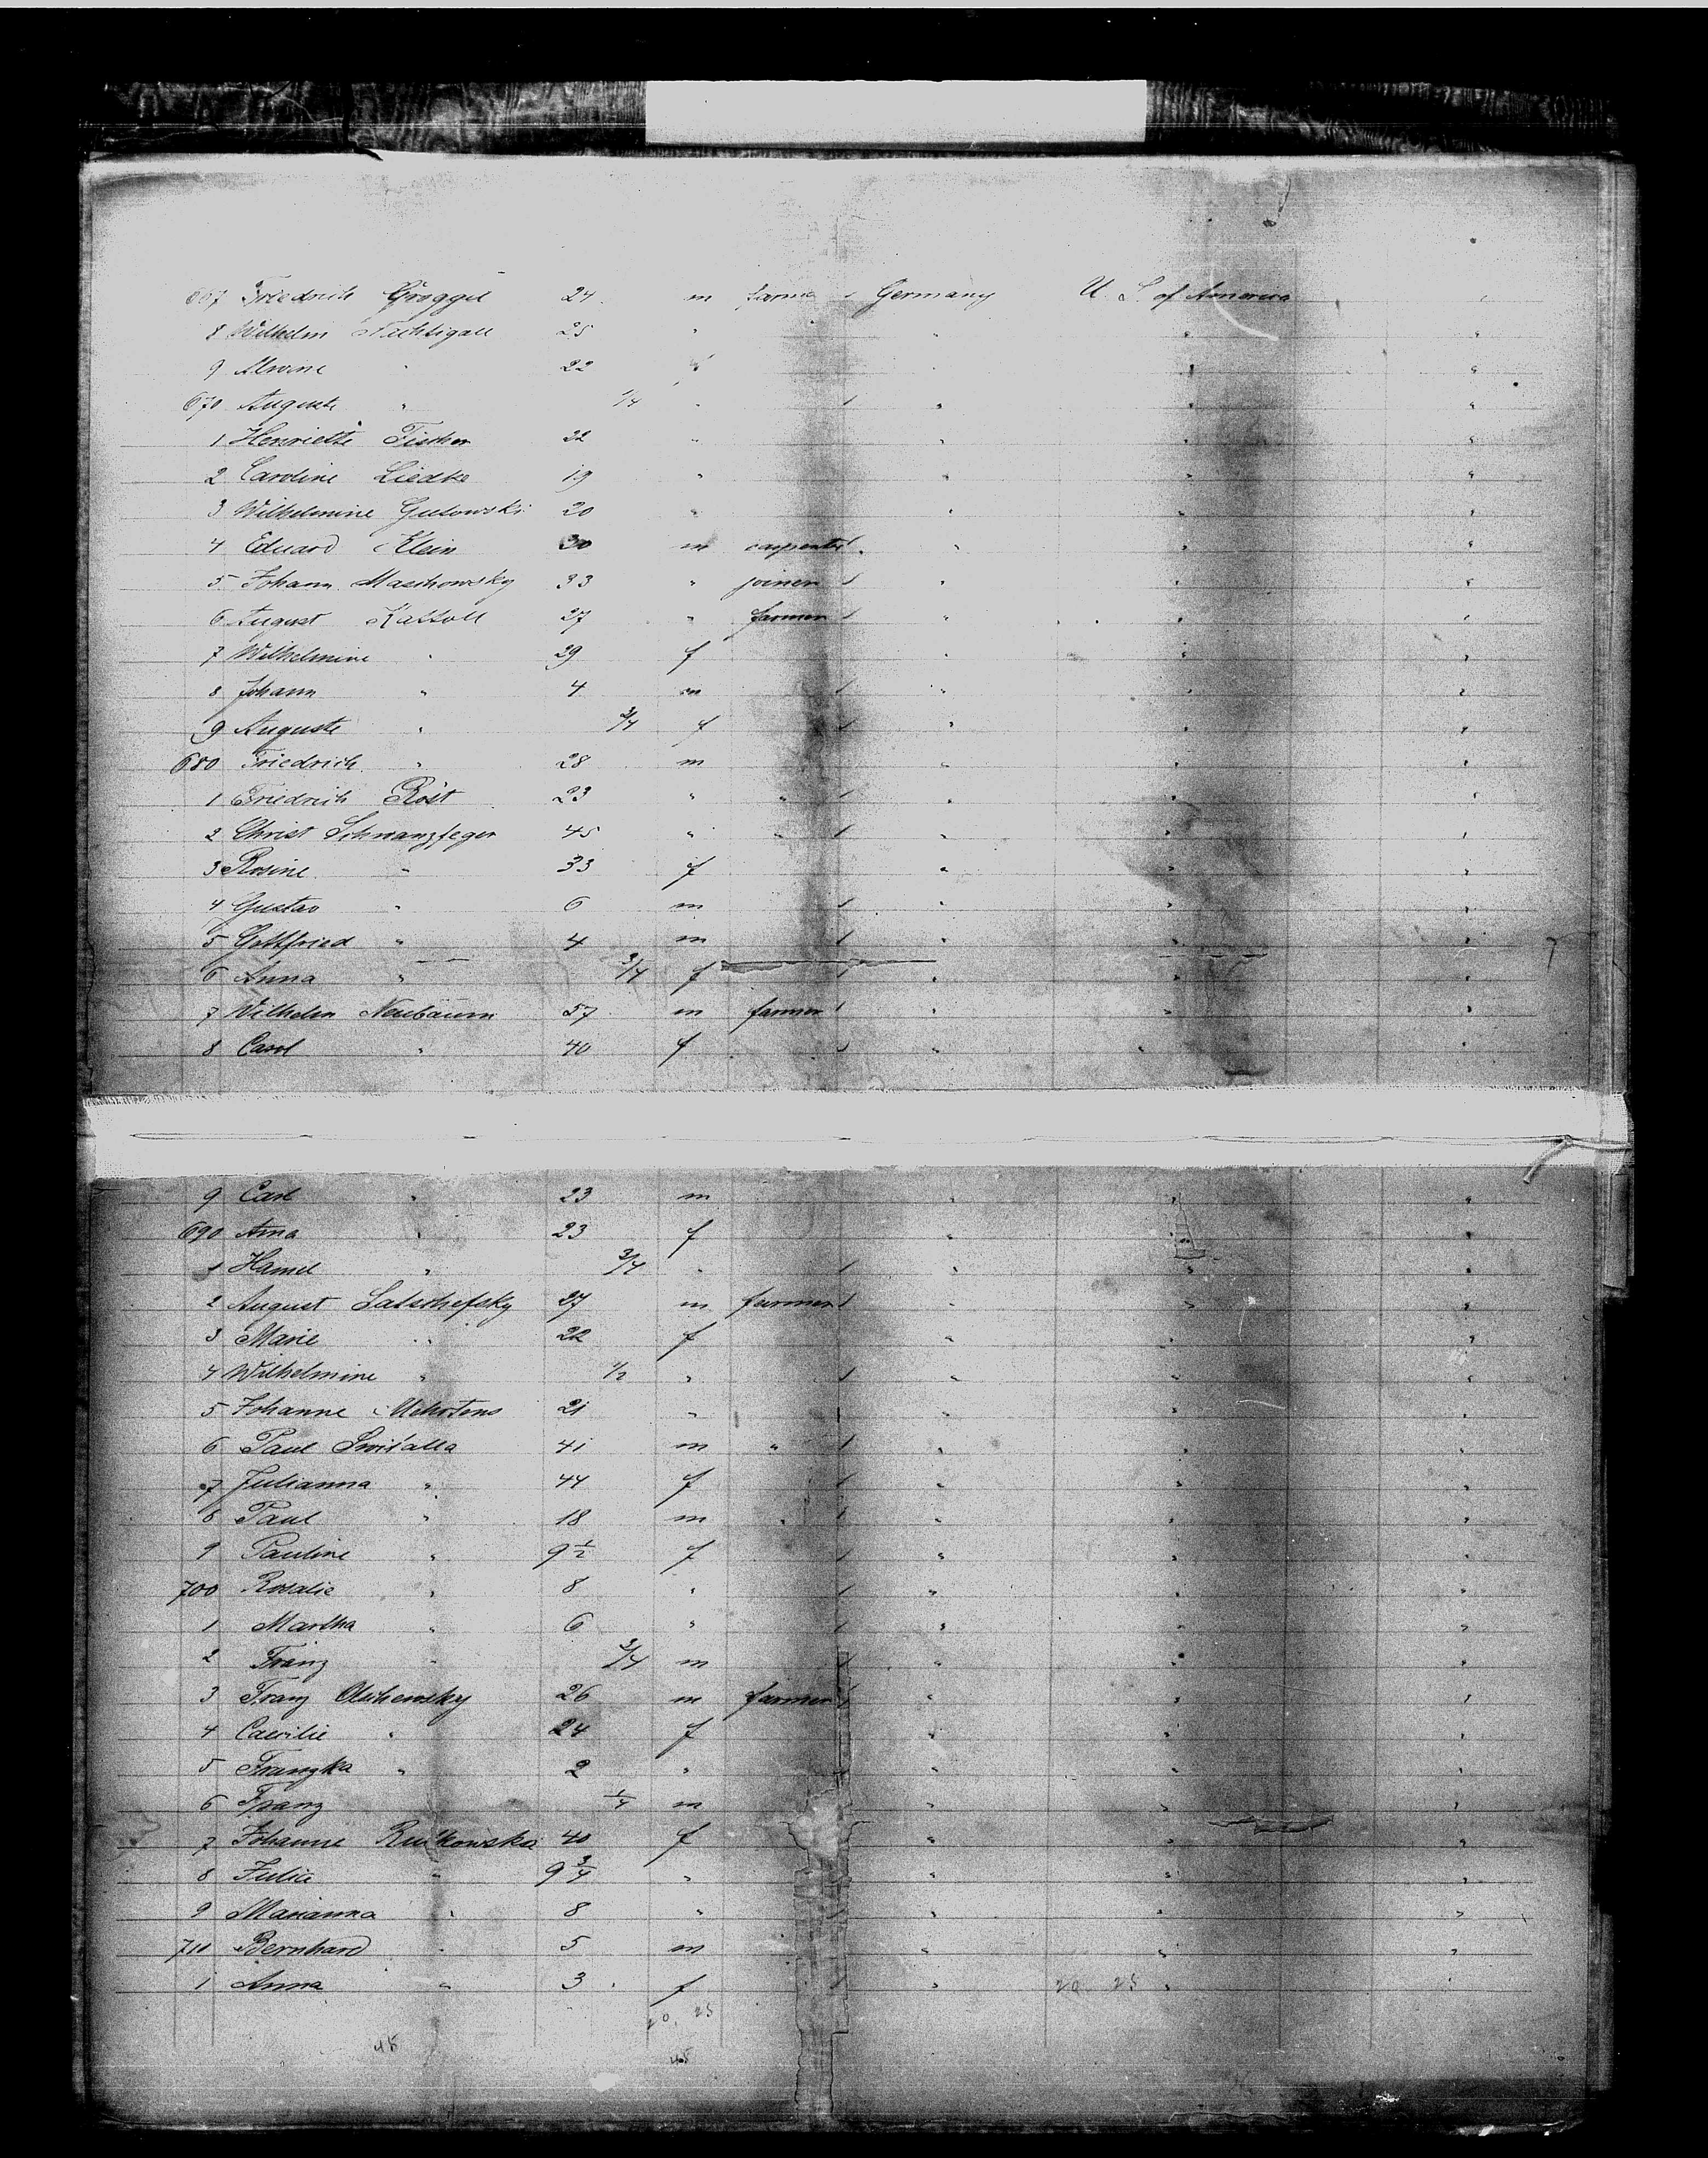 667 Friedrich Groggel 24 m farmer Germany U. S. of America
8 Wilhelm Nachtigall 25 " " " " "
9 Alwine " 22 f " " "
670 Auguste " 1/4 " " " "
1 Henriette Fischer 22 " " " "
2 Caroline Liedke 19 " " " "
3 Wilhelmine Gutowski 20 " " " "
4 Eduard Klein 30 m carpenter " " "
5 Johann Maschowsky 33 " joiner " " "
6 August Kattoll 27 " farmer " " "
7 Wilhelmine " 29 f " " "
8 Johann " 4 m " " "
9 Auguste " 3/4 f " " "
680 Friedrich " 28 m " " "
1 Friedrich Röst 23 " " " " "
2 Christ Schwanzfeger 45 " " " " "
3 Rosine " 33 f " " "
4 Gustav " 6 m " " "
5 Gottfried " 4 m " " "
6 Anna " 3/4 f " " "
7 Wilhelm Neubaum 57 m farmer " " "
8 Carol " 40 f " " "
9 Carl " 23 m " " "
690 Anna " 23 f " " "
1 " 3/4 " " " "
2 August Latschefsky 27 m farmer " " "
3 Marie " 22 f " " "
4 Wilhelmine " 1/2 " " " "
5 Johanne Mehrtens 21 " " " "
6 Paul Switalla 41 m " " " "
7 Julianna " 44 f " " "
8 Paul " 18 m " " " "
9 Pauline " 9 1/2 f " " "
700 Rosalie " 8 " " " "
1 Martha " 6 " " " "
2 Franz " 3/4 m " " "
3 Franz Olschewsky 26 m farmer " " "
4 Caecilie " 24 f " " "
5 Franzka " 2 " " " "
6 Franz 1/4 m " " "
7 Johanne Rutkowska 40 f " " "
8 Julie " 9 3/4 " " " "
9 Marianna " 8 " " " "
710 Bernhard " 5 m " " "
1 Anna " 3 f " 20 25 " "
20. 25
45 45